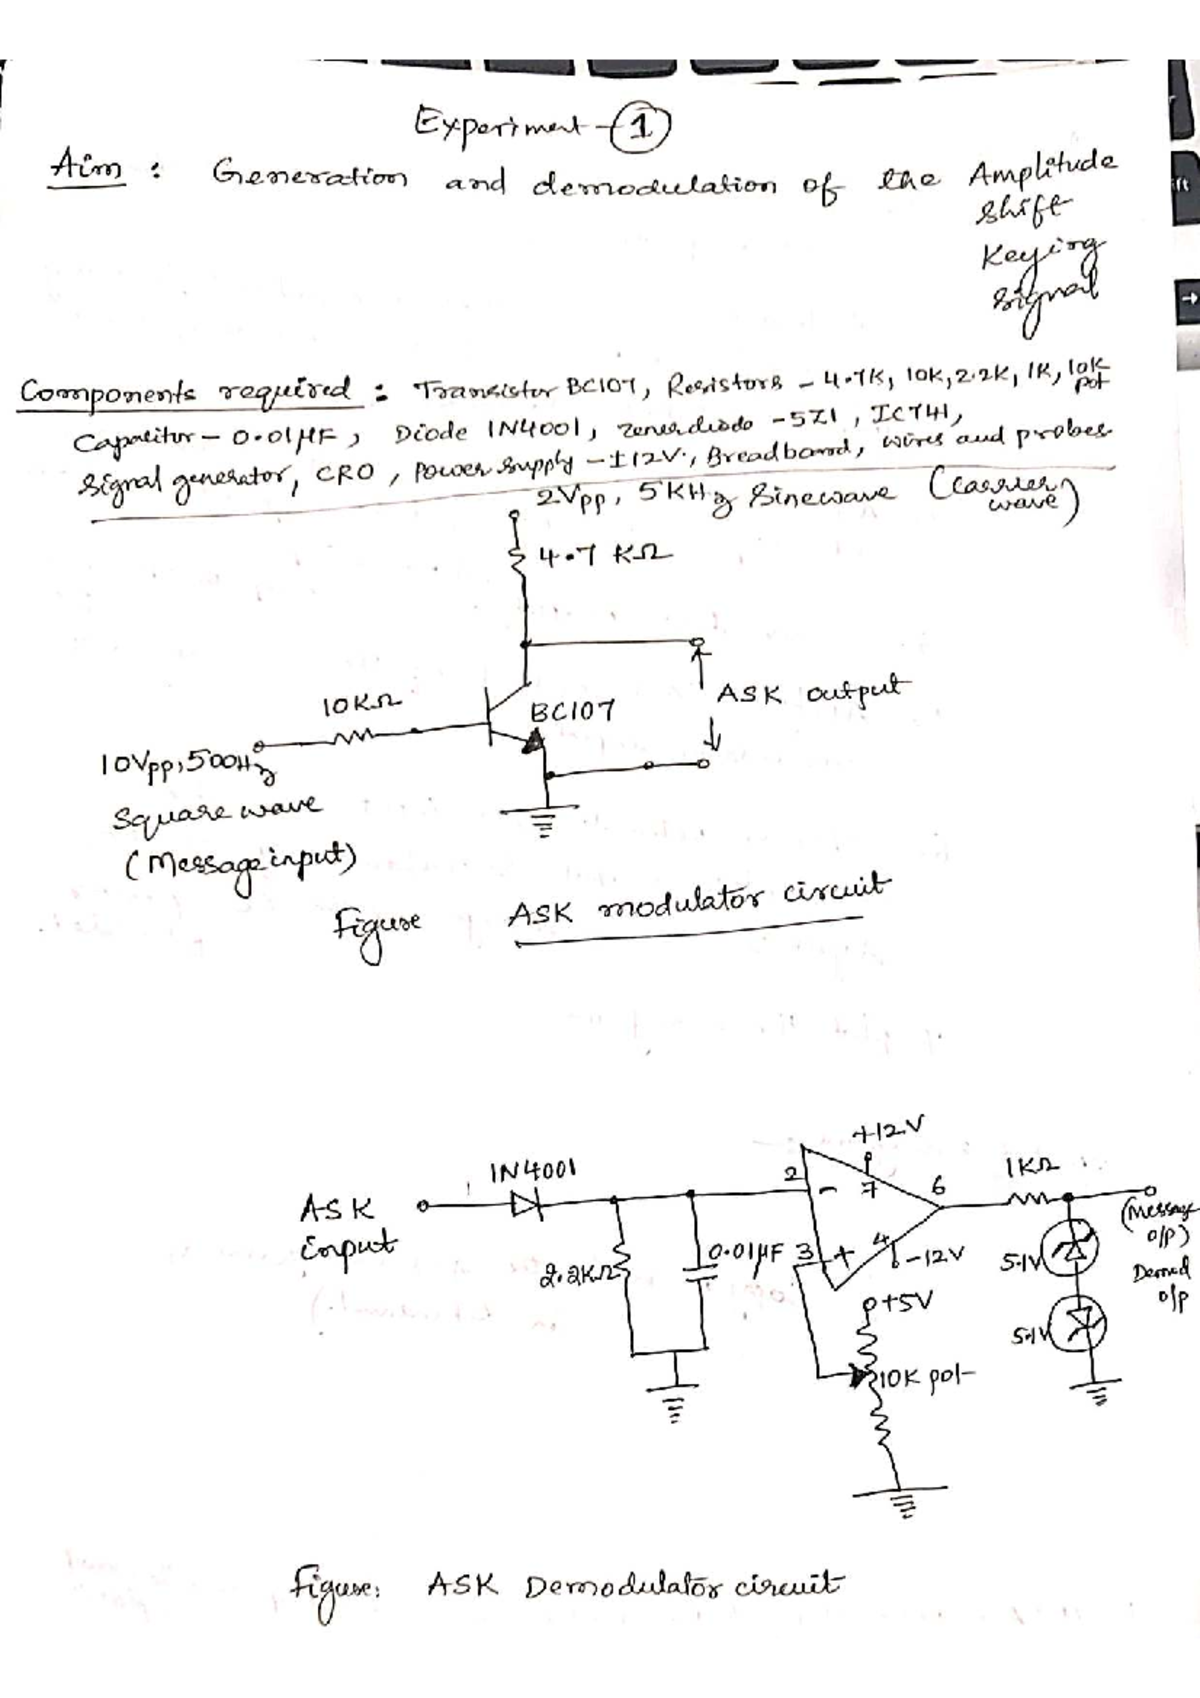 Experiment - 1
Aim : Generation and demodulation of the Amplitude
Shift
Keying
Signal
Components required : Transistor BC107, Resistors - 4.7K, 10K, 2.2K, 1K, 10K pot
Capacitor - 0.01µF, Diode 1N4001, zener diode - 5Z1, IC741,
Signal generator, CRO, Power supply - ±12V, Breadboard, wires and probes
2Vpp, 5KHz Sinewave (carrier wave)
4.7 KΩ
10KΩ
BC107
ASK output
10Vpp, 500Hz
Square wave
(Message input)
Figure ASK modulator circuit
+12V
1N4001
2
-
7
6
1KΩ
ASK
input
2.2KΩ
0.01µF
3
+
4
-12V
5.1V
(Message
o/p)
Demod
o/p
+5V
5.1V
10K pot
Figure: ASK Demodulator circuit